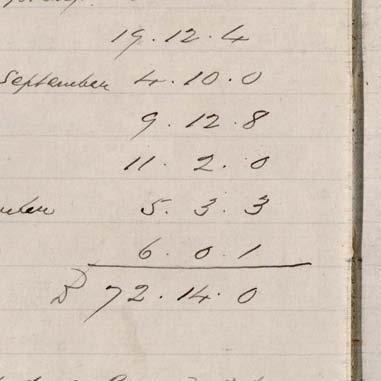 19.12.4
September 4.10.0
9.12.8
11.2.0
5.3.3
6.0.1
72.14.0